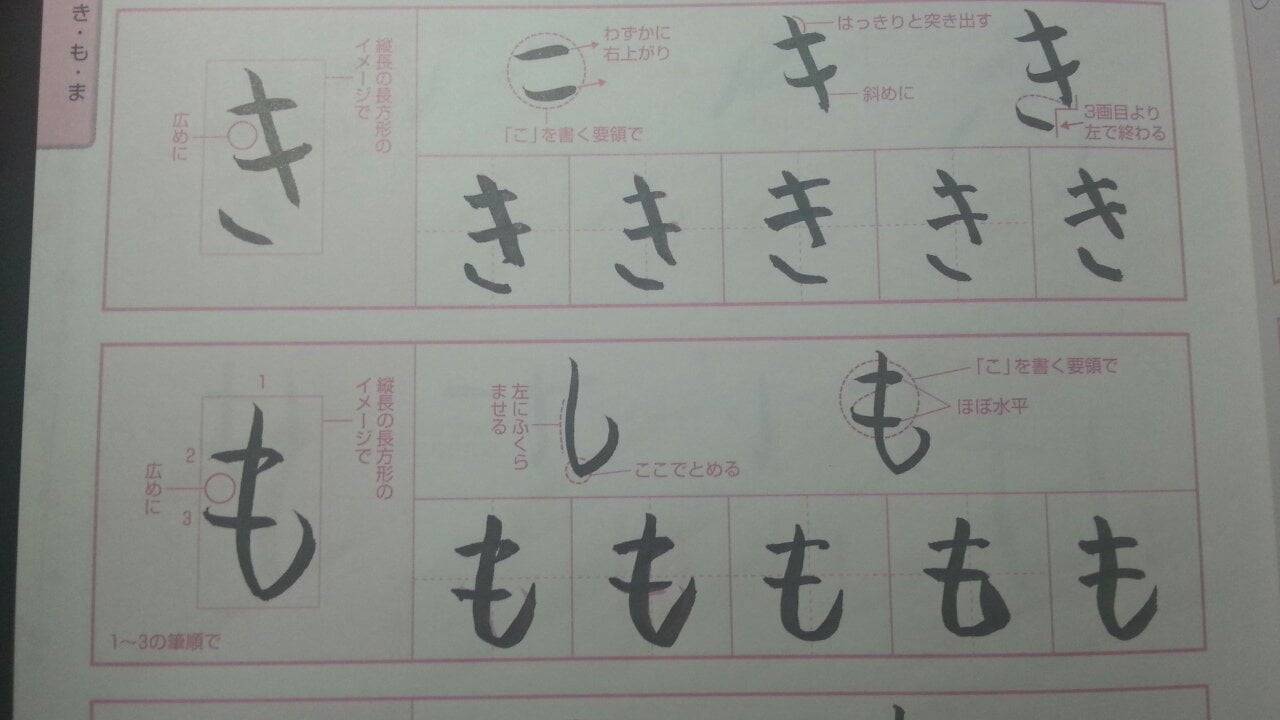 き・も・ま
縦長の長方形の
イメージで
広めに
き
こ
わずかに
右上がり
「こ」を書く要領で
き
はっきりと突き出す
斜めに
き
3画目より
左で終わる
き き き き き
縦長の長方形の
イメージで
1
2
3
広めに
も
1〜3の筆順で
し
左にふくら
ませる
ここでとめる
も
「こ」を書く要領で
ほぼ水平
も も も も も